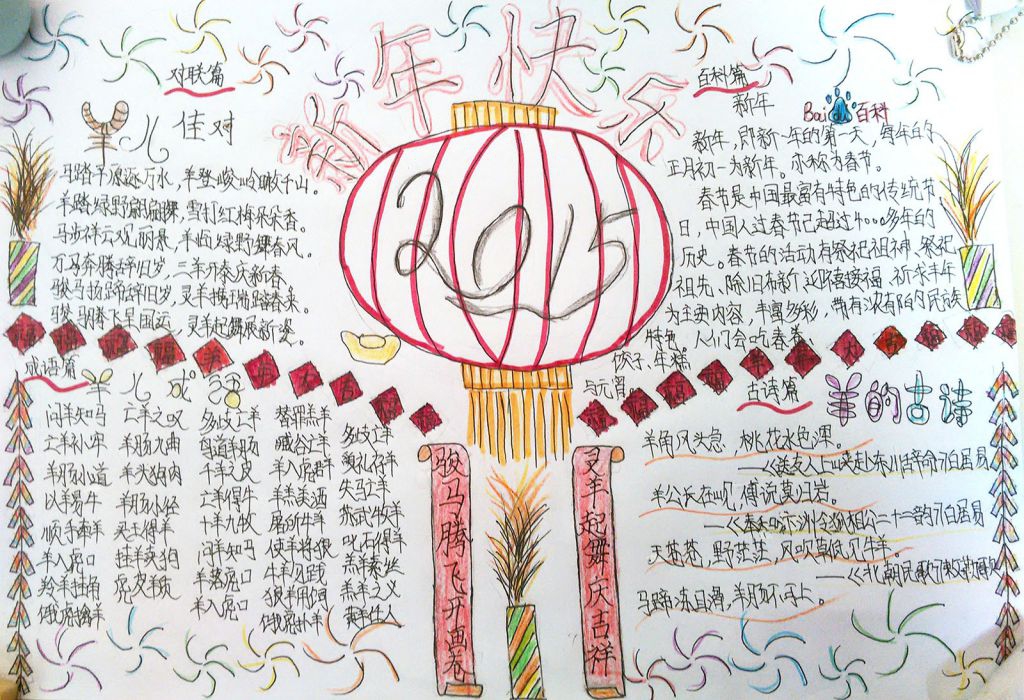 新年快乐
2015
对联篇
羊儿佳对
马踏平原逐万水,羊登峻岭瞰千山。
羊踏绿野翩翩裸,雪打红梅朵朵香。
马步祥云观丽景,羊临绿野舞春风。
万马奔腾辞旧岁,三羊开泰庆新春。
骏马扬蹄辞旧岁,灵羊携瑞踏春来。
骏马腾飞早国运,灵羊起舞展新姿。
百科篇
新年
Bai du 百科
新年,即新一年的第一天,每年的
正月初一为新年。亦称为春节。
春节是中国最富有特色的传统节
日,中国人过春节已超过4000多年的
历史。春节的活动有祭祀祖神、祭祀
祖先、除旧布新、迎禧接福、祈求丰年
为主要内容,丰富多彩,带有浓郁的民族
特色。人们会吃春卷
饺子、年糕
与元宵。
成语篇
羊儿成语
问羊知马 亡羊之叹 多歧亡羊 替罪羔羊 多歧亡羊
亡羊补牢 羊肠九曲 鸟道羊肠 臧谷亡羊 羊
羊肠小道 羊头狗肉 千羊之皮 羊入虎群 失马亡羊
以羊易牛 羊肠小径 亡羊得牛 羊羔美酒 苏武牧羊
顺手牵羊 买王得羊 十羊九牧 屠所牛羊 叱石得羊
羊入虎口 挂羊卖狗 问羊知马 使羊将狼 羔羊素丝
羚羊挂角 虎皮羊质 羊落虎口 牛羊勿践 羔羊之义
饿虎擒羊 羊入虎口 狼羊同饲 肉羊仕人
饿虎扑羊
骏马腾飞开画卷
灵羊起舞庆吉祥
古诗篇
羊的古诗
羊角风头急,桃花水色浑。
——《送友人上峡赴东川辞命》白居易
羊公长在岘,傅说莫归岩。
——《奉和汴州令狐相公二十二韵》白居易
天苍苍,野茫茫,风吹草低见牛羊。
——《北朝民歌》敕勒
马蹄冻且滑,羊肠不可上。